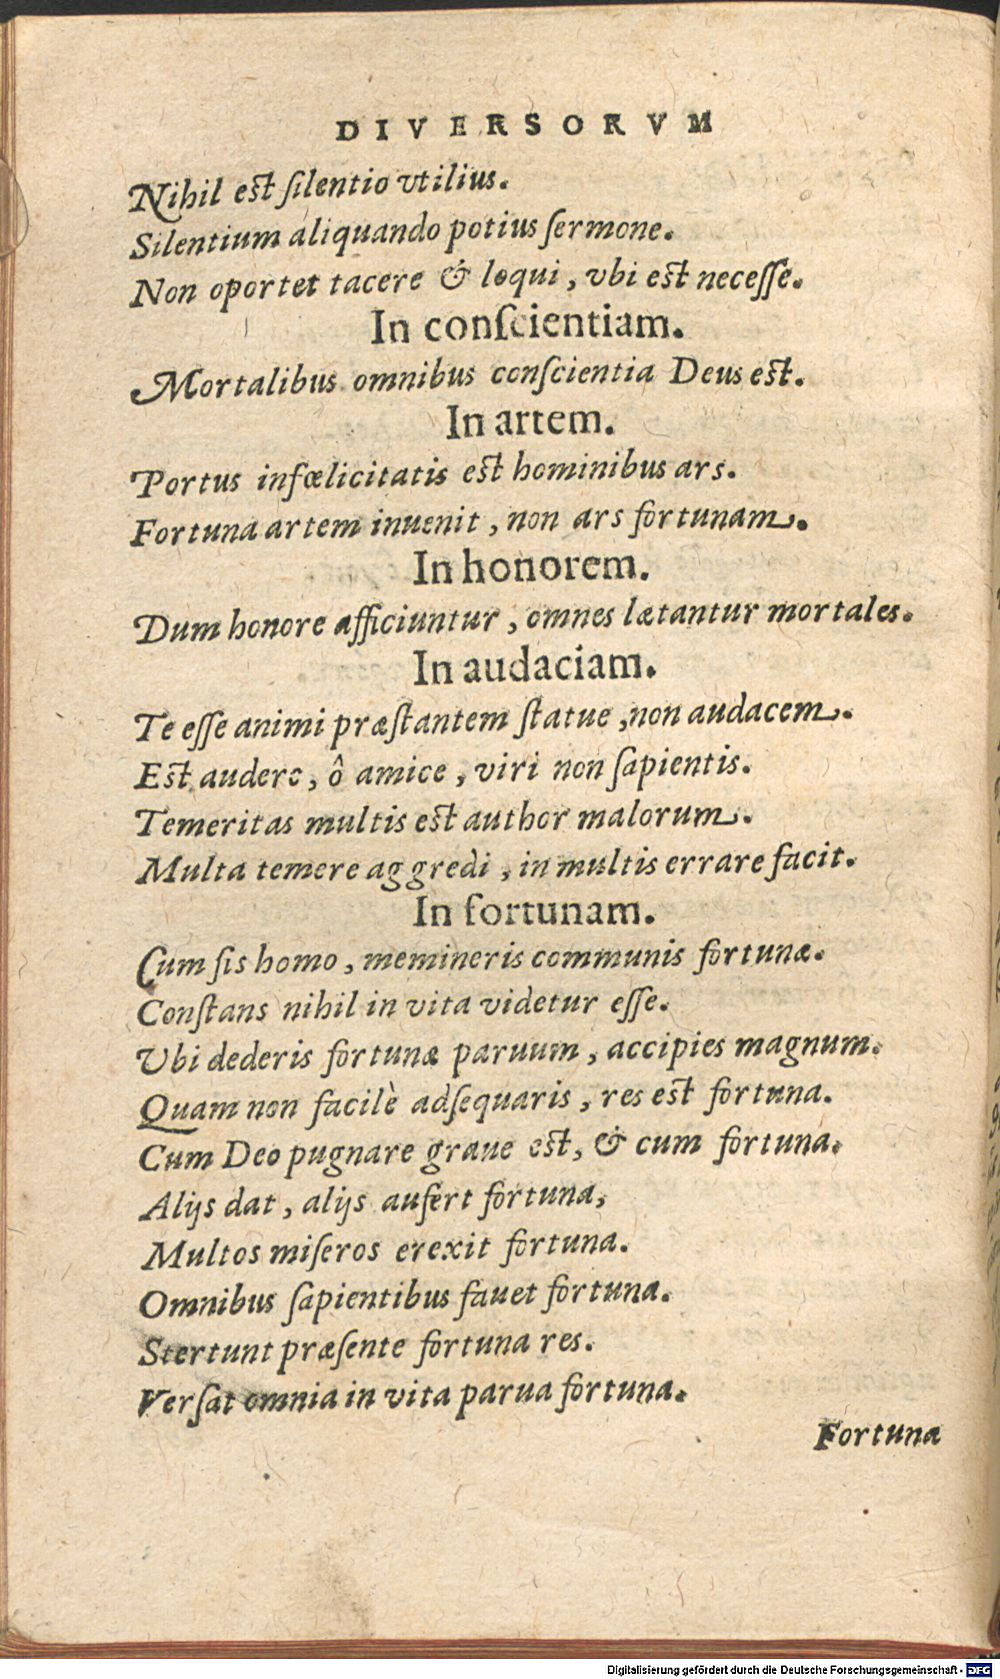 DIVERSORVM
Nihil est ſilentio vtilius.
Silentium aliquando potius ſermone.
Non oportet tacere & loqui, vbi est neceſſe.
In conſcientiam.
Mortalibus omnibus conſcientia Deus est.
In artem.
Portus infœlicitatis est hominibus ars.
Fortuna artem inuenit, non ars fortunam.
In honorem.
Dum honore afficiuntur, omnes lætantur mortales.
In audaciam.
Te eſſe animi præſtantem ſtatue, non audacem.
Est audere, ô amice, viri non ſapientis.
Temeritas multis est author malorum.
Multa temere aggredi, in multis errare facit.
In fortunam.
Cum ſis homo, memineris communis fortunæ.
Conſtans nihil in vita videtur eſſe.
Vbi dederis fortunæ paruum, accipies magnum.
Quam non facilè adſequaris, res est fortuna.
Cum Deo pugnare graue est, & cum fortuna.
Alijs dat, alijs aufert fortuna,
Multos miſeros erexit fortuna.
Omnibus ſapientibus fauet fortuna.
Stertunt præſente fortuna res.
Verſat omnia in vita parua fortuna.
Fortuna
Digitalisierung gefördert durch die Deutsche Forschungsgemeinschaft - DFG